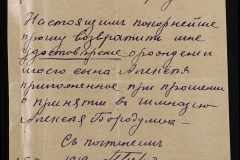 Настоящимъ покорнѣйше
прошу возвратить мне
удостовѣрение о рождении
моего сына Алексѣя
приложенное при прошении
о принятiи въ гимназию
Алексѣя Бородулина
Съ почтением